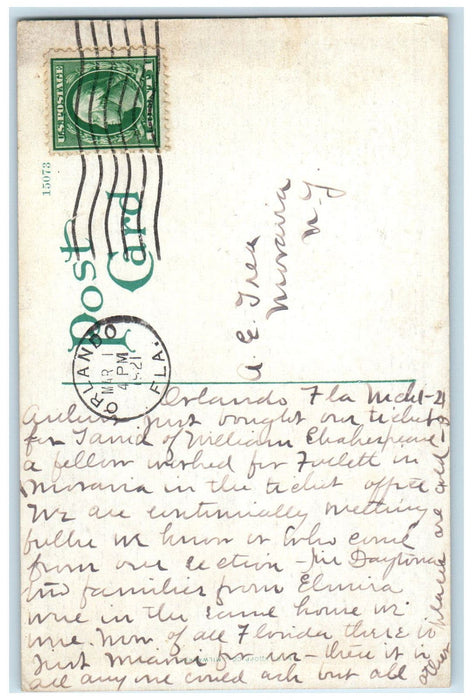 U.S. POSTAGE
1 CENT 1
15073
Post Card
ORLANDO
MAR 1
4 PM
1921
FLA.
A. E.
Moravia
N.Y.
Orlando Fla Mch 1-21
just bought our tickets
for of William Shakespeare
a fellow worked for in
Moravia in the ticket office
We are continually meeting
we know or who come
from our section - In Daytona
two families from Elmira
were in the same house we
were. Now of all Florida there is
just Miami for me - there it is
all any one could ask but all
other places are cold